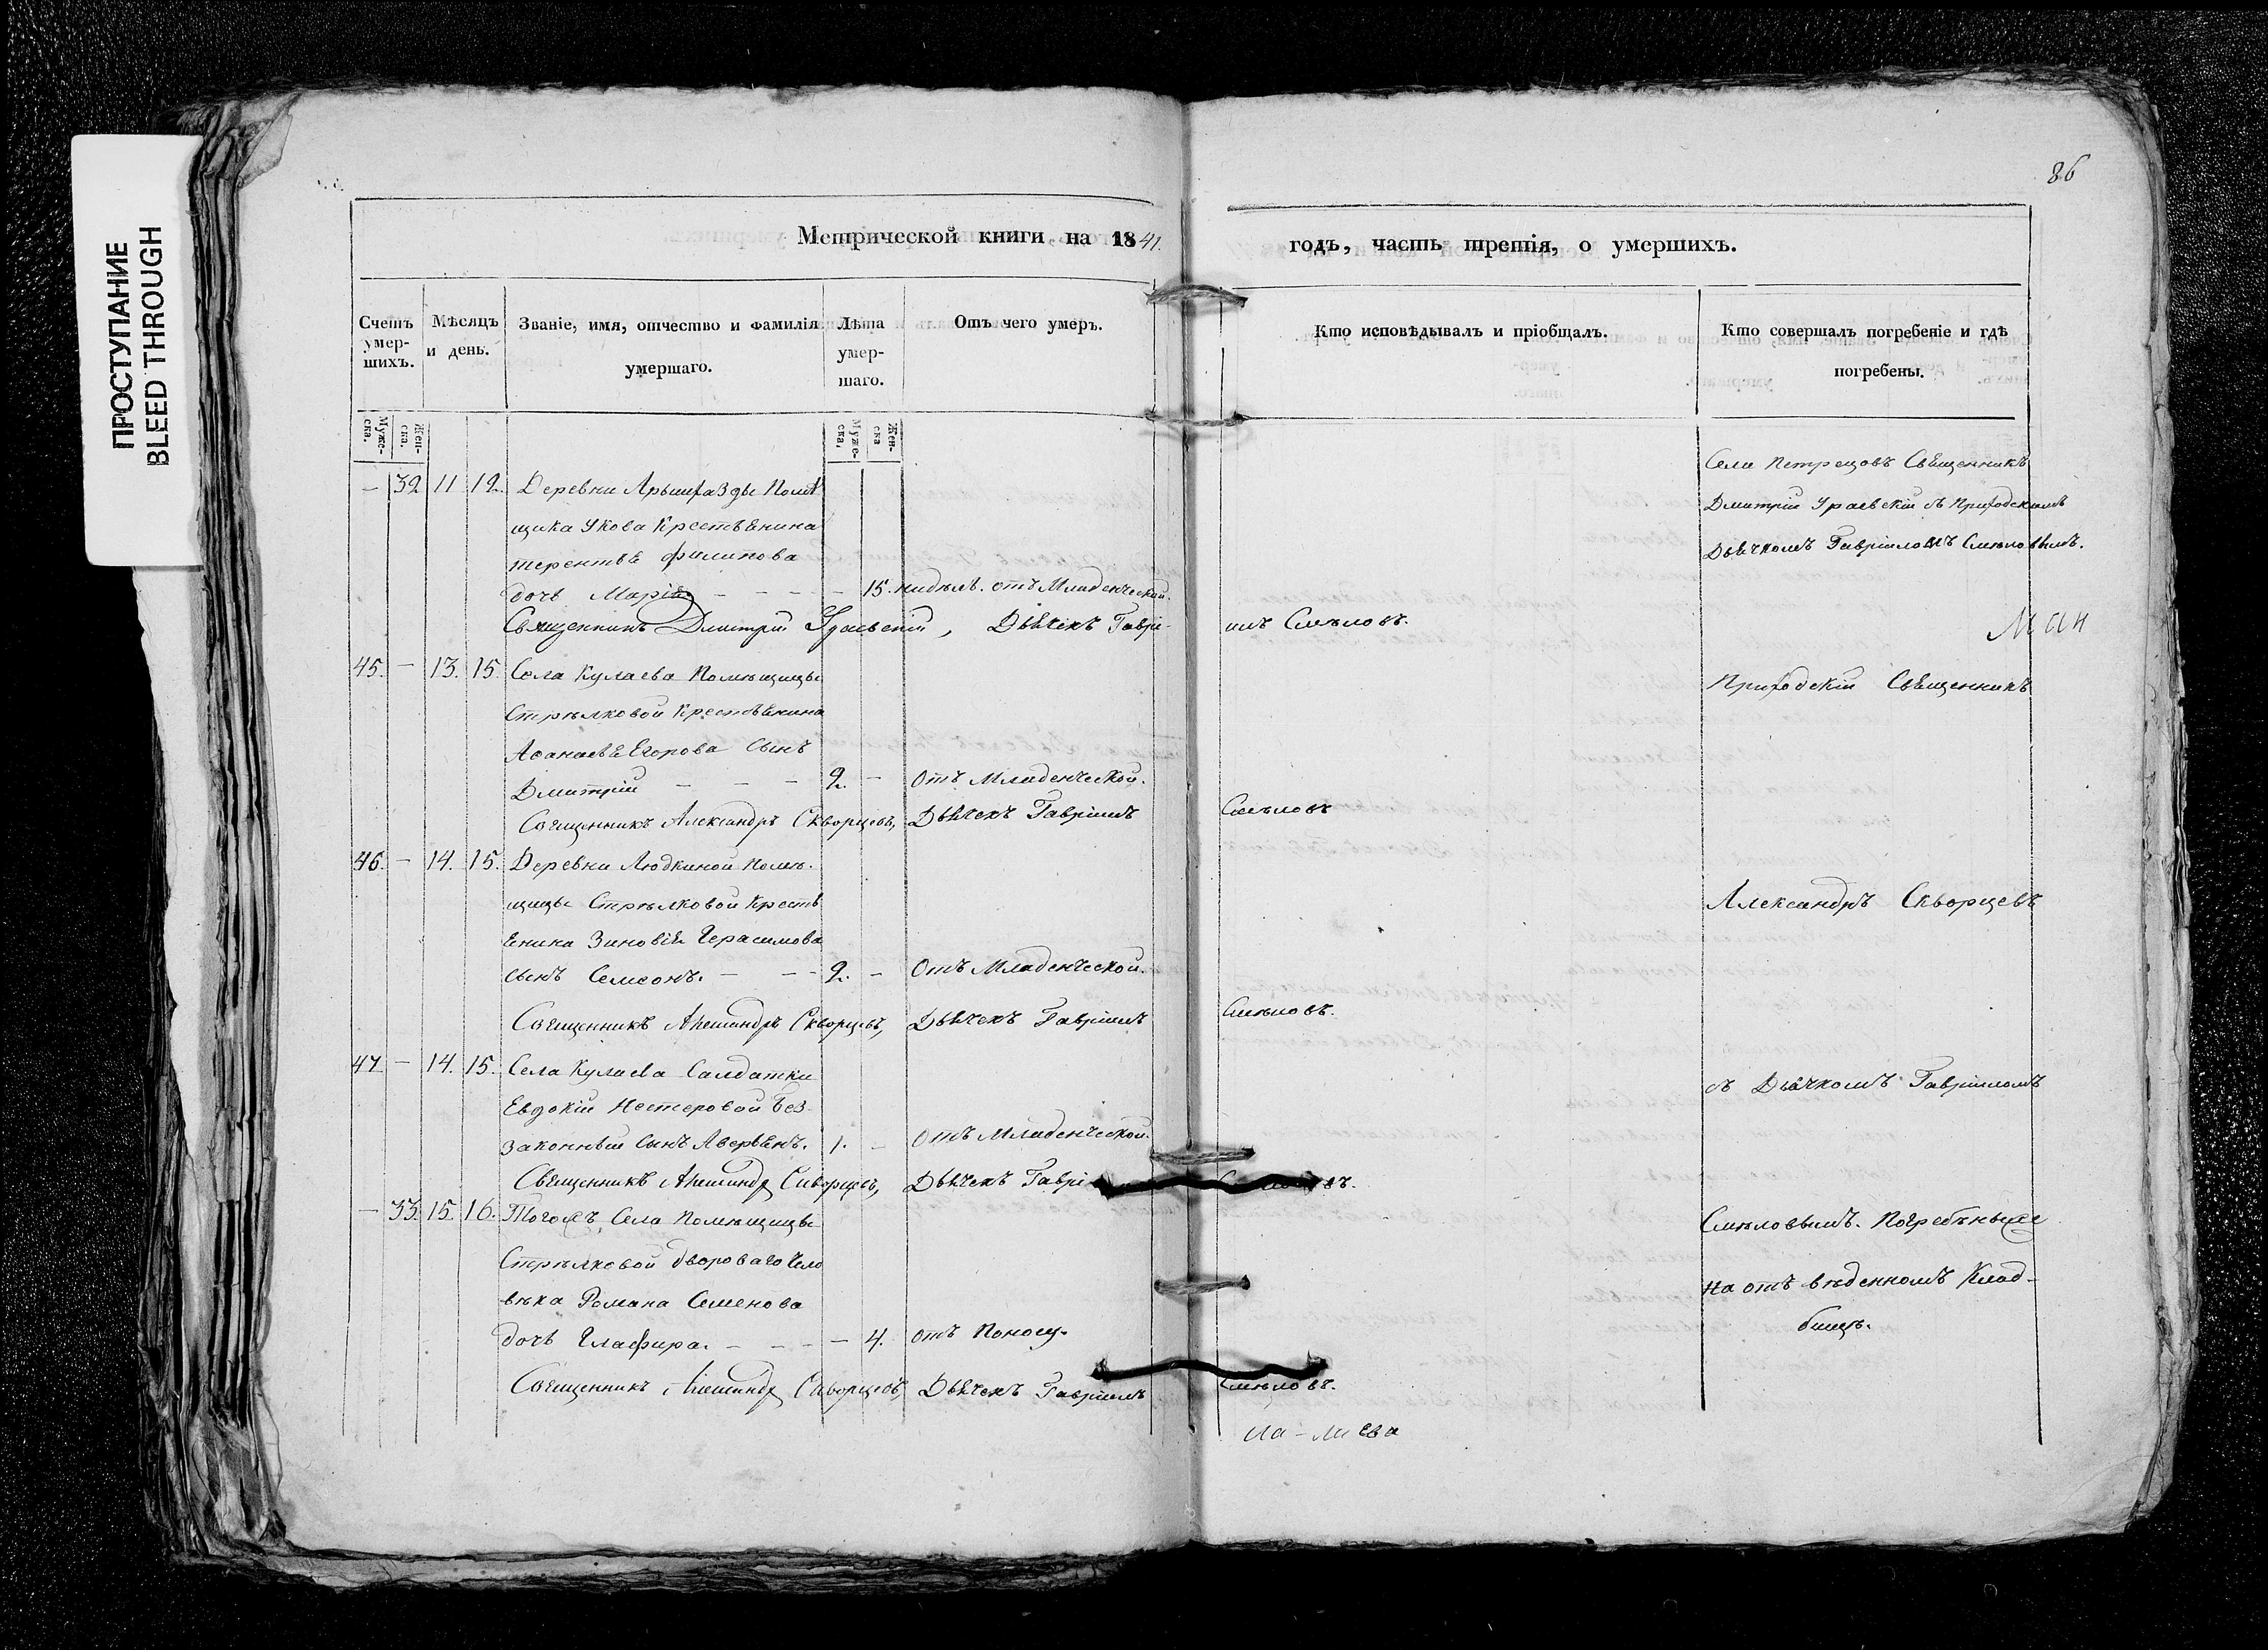 ПРОСТУПАНИЕ
BLEED THROUGH
86
Метрической книги на 1841. годъ, часть третія, о умершихъ.
Счетъ умер-шихъ.
Мѣсяцъ и день.
Званіе, имя, отчество и фамилія умершаго.
Лѣта умер-шаго.
Отъ чего умеръ.
Кто исповѣдывалъ и пріобщалъ.
Кто совершалъ погребеніе и гдѣ погребены.
Муже-ска.
Жен-ска.
Муже-ска,
Жен-ска
— 32 11 12. Деревни Помѣ
щика Укова Крестьянина
терентья филипова
дочь Марія — — — — 15. нидѣль. отъ Младенческой.
Священникъ Дмитрій Ураевскій, Дьячекъ Гаврі-
илъ Смѣловъ.
Села Петрецовъ Священникъ
Дмитрій Ураевскій съ Приходскимъ
Дьячкомъ Гавріломъ Смѣловымъ.
45. — 13. 15. Села Кулаева Помѣщицы
Стрѣлковой Крестьянина
Аѳанасья Егорова Сынъ
Дмитрій — — — 2. — Отъ Младенческой.
Священникъ Александръ Скворцовъ, Дьячекъ Гавріилъ Смѣловъ
Приходскій Священникъ
46. — 14. 15. Деревни Людкиной Помѣ-
щицы Стрѣлковой Кресть
янина Зиновія Герасимова
сынъ Семеонъ. — — — 2. — Отъ Младенческой.
Священникъ Александръ Скворцовъ, Дьячекъ Гавріилъ Смѣловъ.
Александръ Скворцовъ
47 — 14. 15. Села Кулаева Салдатки
Евдокіи Нестеровой Без-
законный сынъ Аверьянъ. 1. — Отъ Младенческой.
Священникъ Александръ Скворцовъ, Дьячекъ
съ Дьячкомъ Гавріиломъ
— 33. 15. 16. Тогожъ Села Помѣщицы
Стрѣлковой двороваго Чело
вѣка Романа Семенова
дочь Глафира. — — — — 4. отъ Поносу.
Священникъ Александръ Скворцовъ, Дьячекъ Гавріилъ Смѣловъ.
Смѣловымъ. Погребены
На отъ вѣденномъ Клад-
бищѣ.